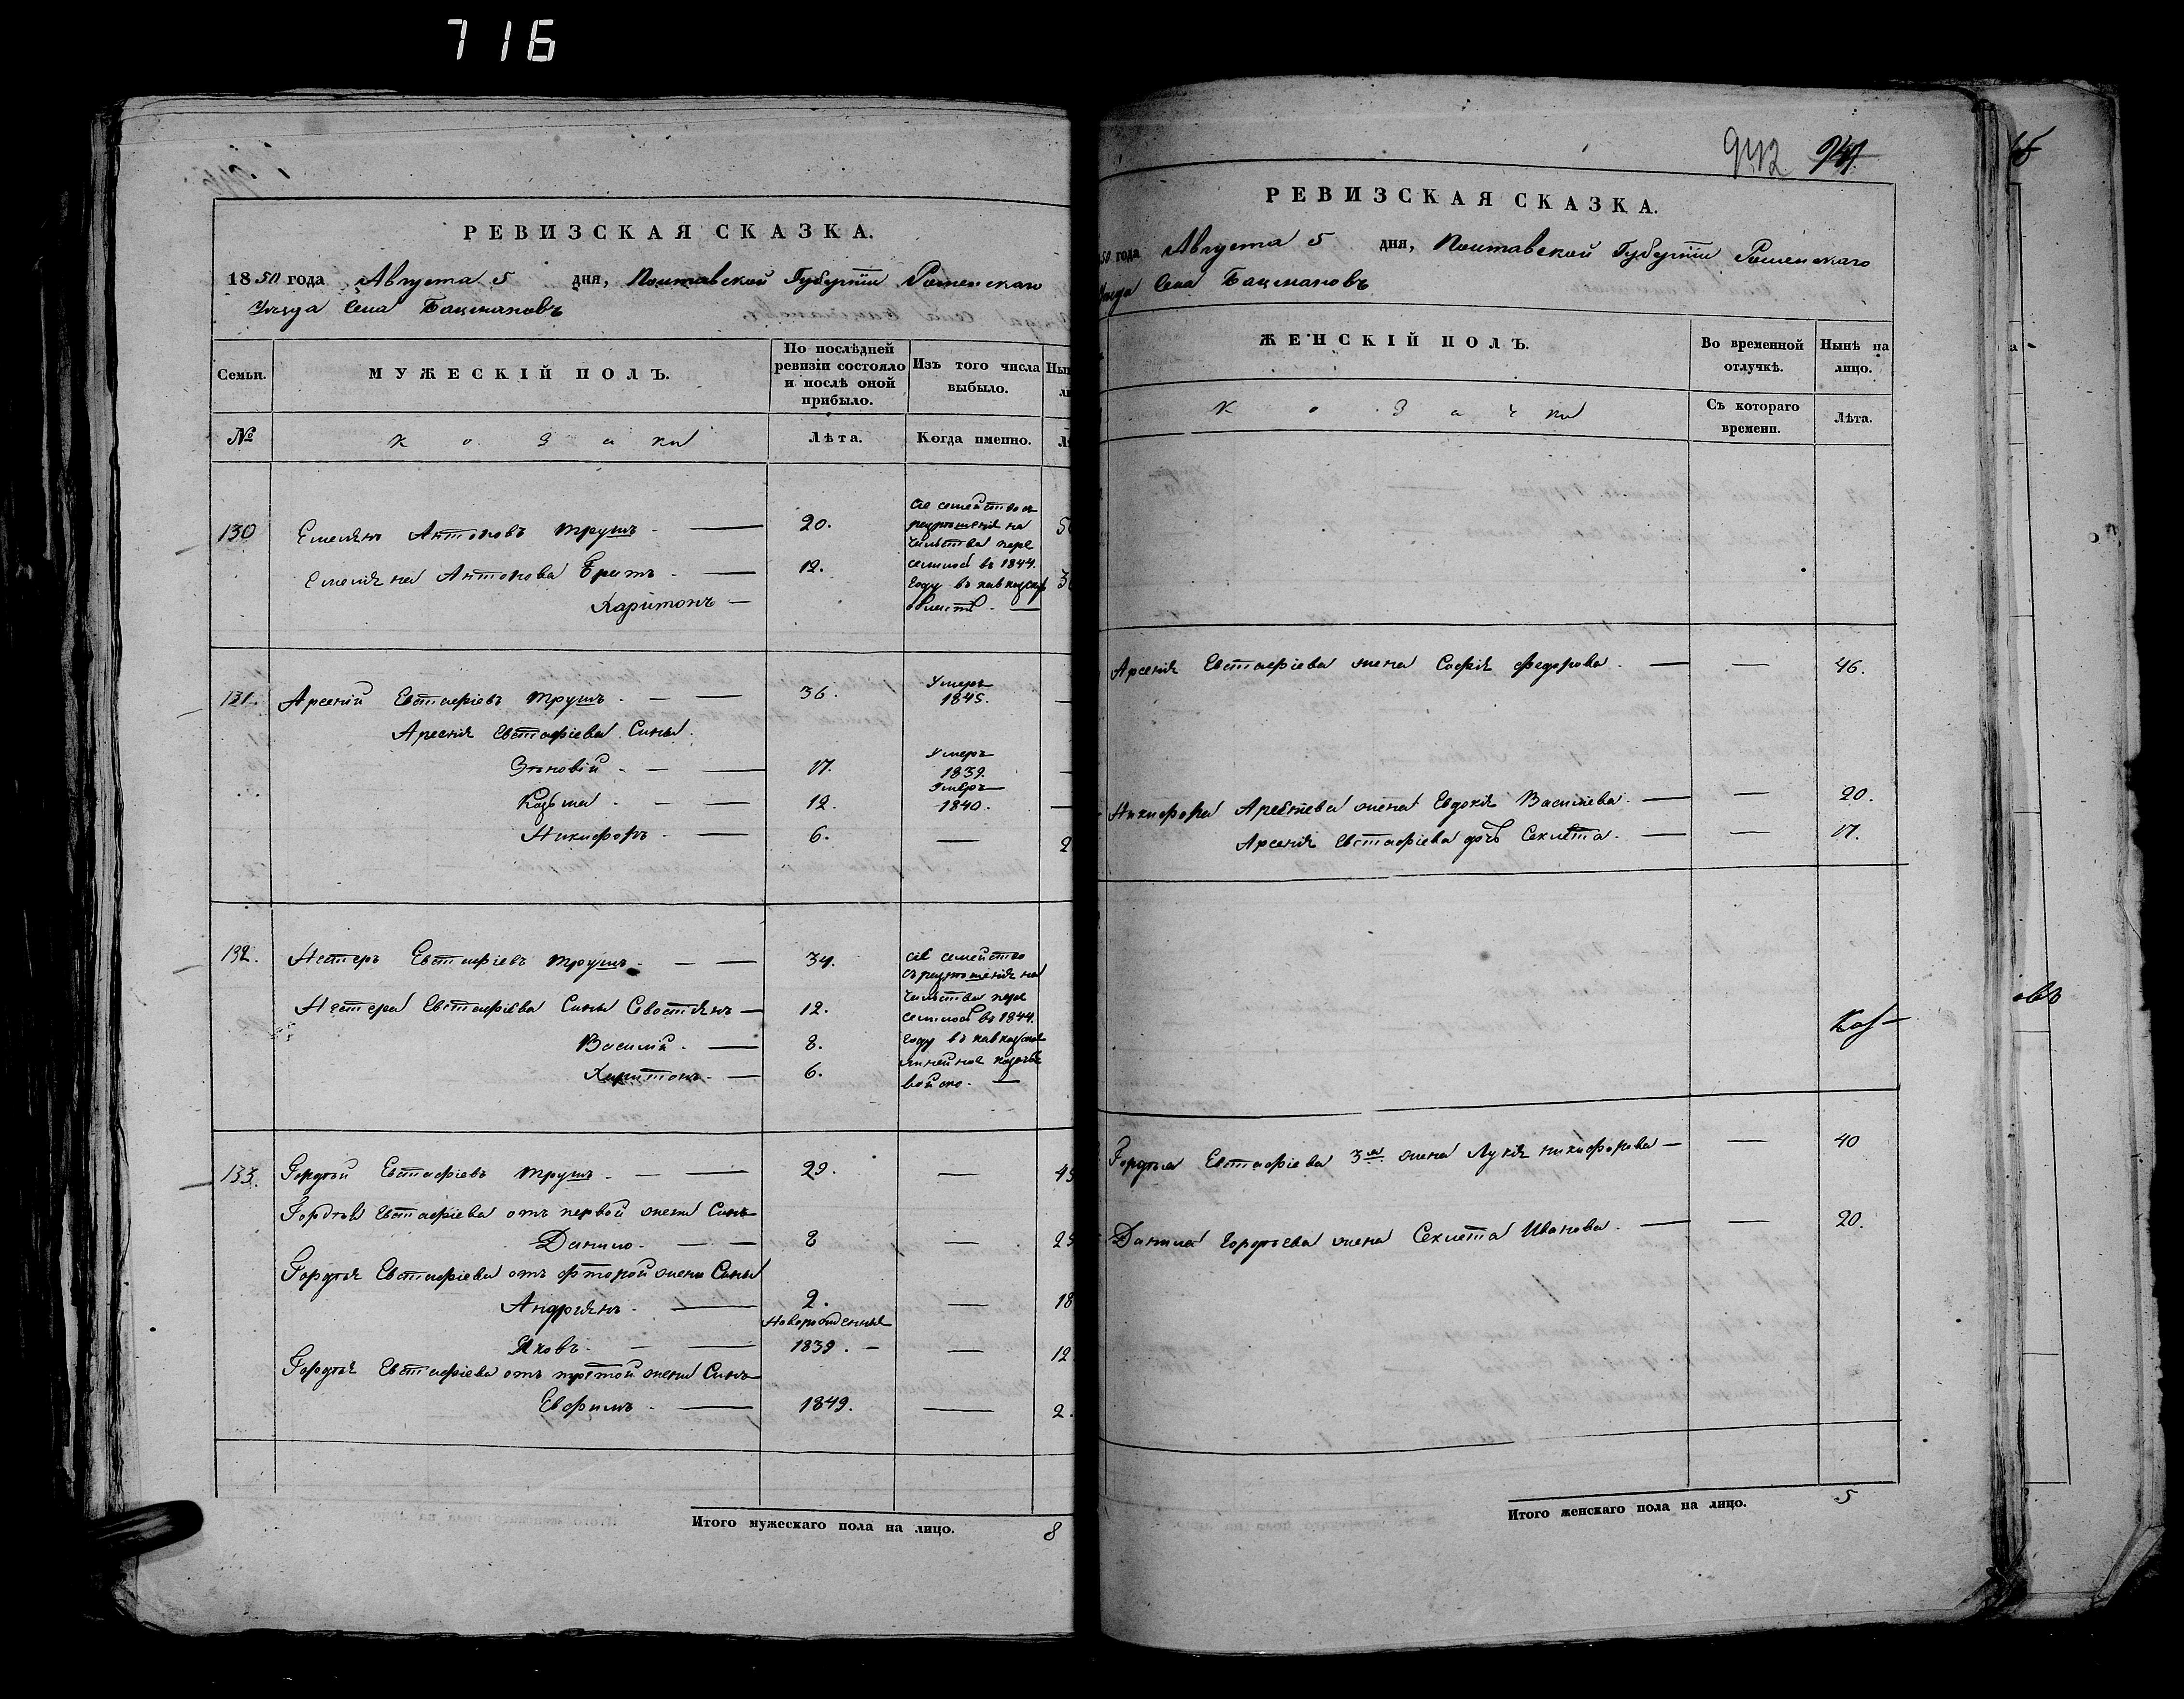 716
РЕВИЗСКАЯ СКАЗКА.
1850 года Августа 5 дня, Полтавской Губерніи Роменскаго
Уезда Села Бацмановъ
Семьи. МУЖЕСКІЙ ПОЛЪ. По послѣдней ревизіи состояло и послѣ оной прибыло. Изъ того числа выбыло.
№ Козаки Лѣта. Когда именно.
130 Емелянъ Антоновъ Трушъ 20.
Сіе семейство съ
разрешенія на
чальства пере
селилось въ 1844.
году въ кавказскую
область
Емеляна Антонова Братъ 12.
Харитонъ
131. Арсеній Евстафіевъ Трушъ 36. Умеръ 1845.
Арсенія Евстафіева Сыны
Зѣновій 17. Умеръ 1839.
Козьма 12. Умеръ 1840.
Никифоръ 6.
132. Нестеръ Евстафіевъ Трушъ 34.
сіе семейство
съ разрешенія на
чальства пере
селилось въ 1844.
году въ кавказкое
линейное козачье
войско
Нестера Евстафіева Сыны Севостіянъ 12.
Василій 8.
Харитонъ 6.
133. Гордѣй Евстафіевъ Трушъ 29.
Гордѣя Евстафіева отъ первой жены Сынъ
Данило 8
Гордѣя Евстафіева отъ фторой жены Сыны
Андріянъ 2. 18
Новорожденные
Яковъ 1839. 12
Гордѣя Евстафіева отъ третой жены Сынъ
Евфимъ 1849. 2.
Итого мужескаго пола на лицо. 8
942 941
РЕВИЗСКАЯ СКАЗКА.
50 года Августа 5 дня, Полтавской Губерніи Роменскаго
Уезда Села Бацмановъ
ЖЕНСКІЙ ПОЛЪ. Во временной отлучкѣ. Нынѣ на лицо.
Козачки Съ котораго времени. Лѣта.
Арсенія Евстафіева жена Софія Федорова 46.
Никифора Арсентева жена Евдокія Василіева 20.
Арсенія Евстафіева дочь Секлета 17.
Гордѣя Евстафіева 3я жена Лукія никифорова 40
Данила Гордѣева жена Секлета Иванова 20.
Итого женскаго пола на лицо. 5